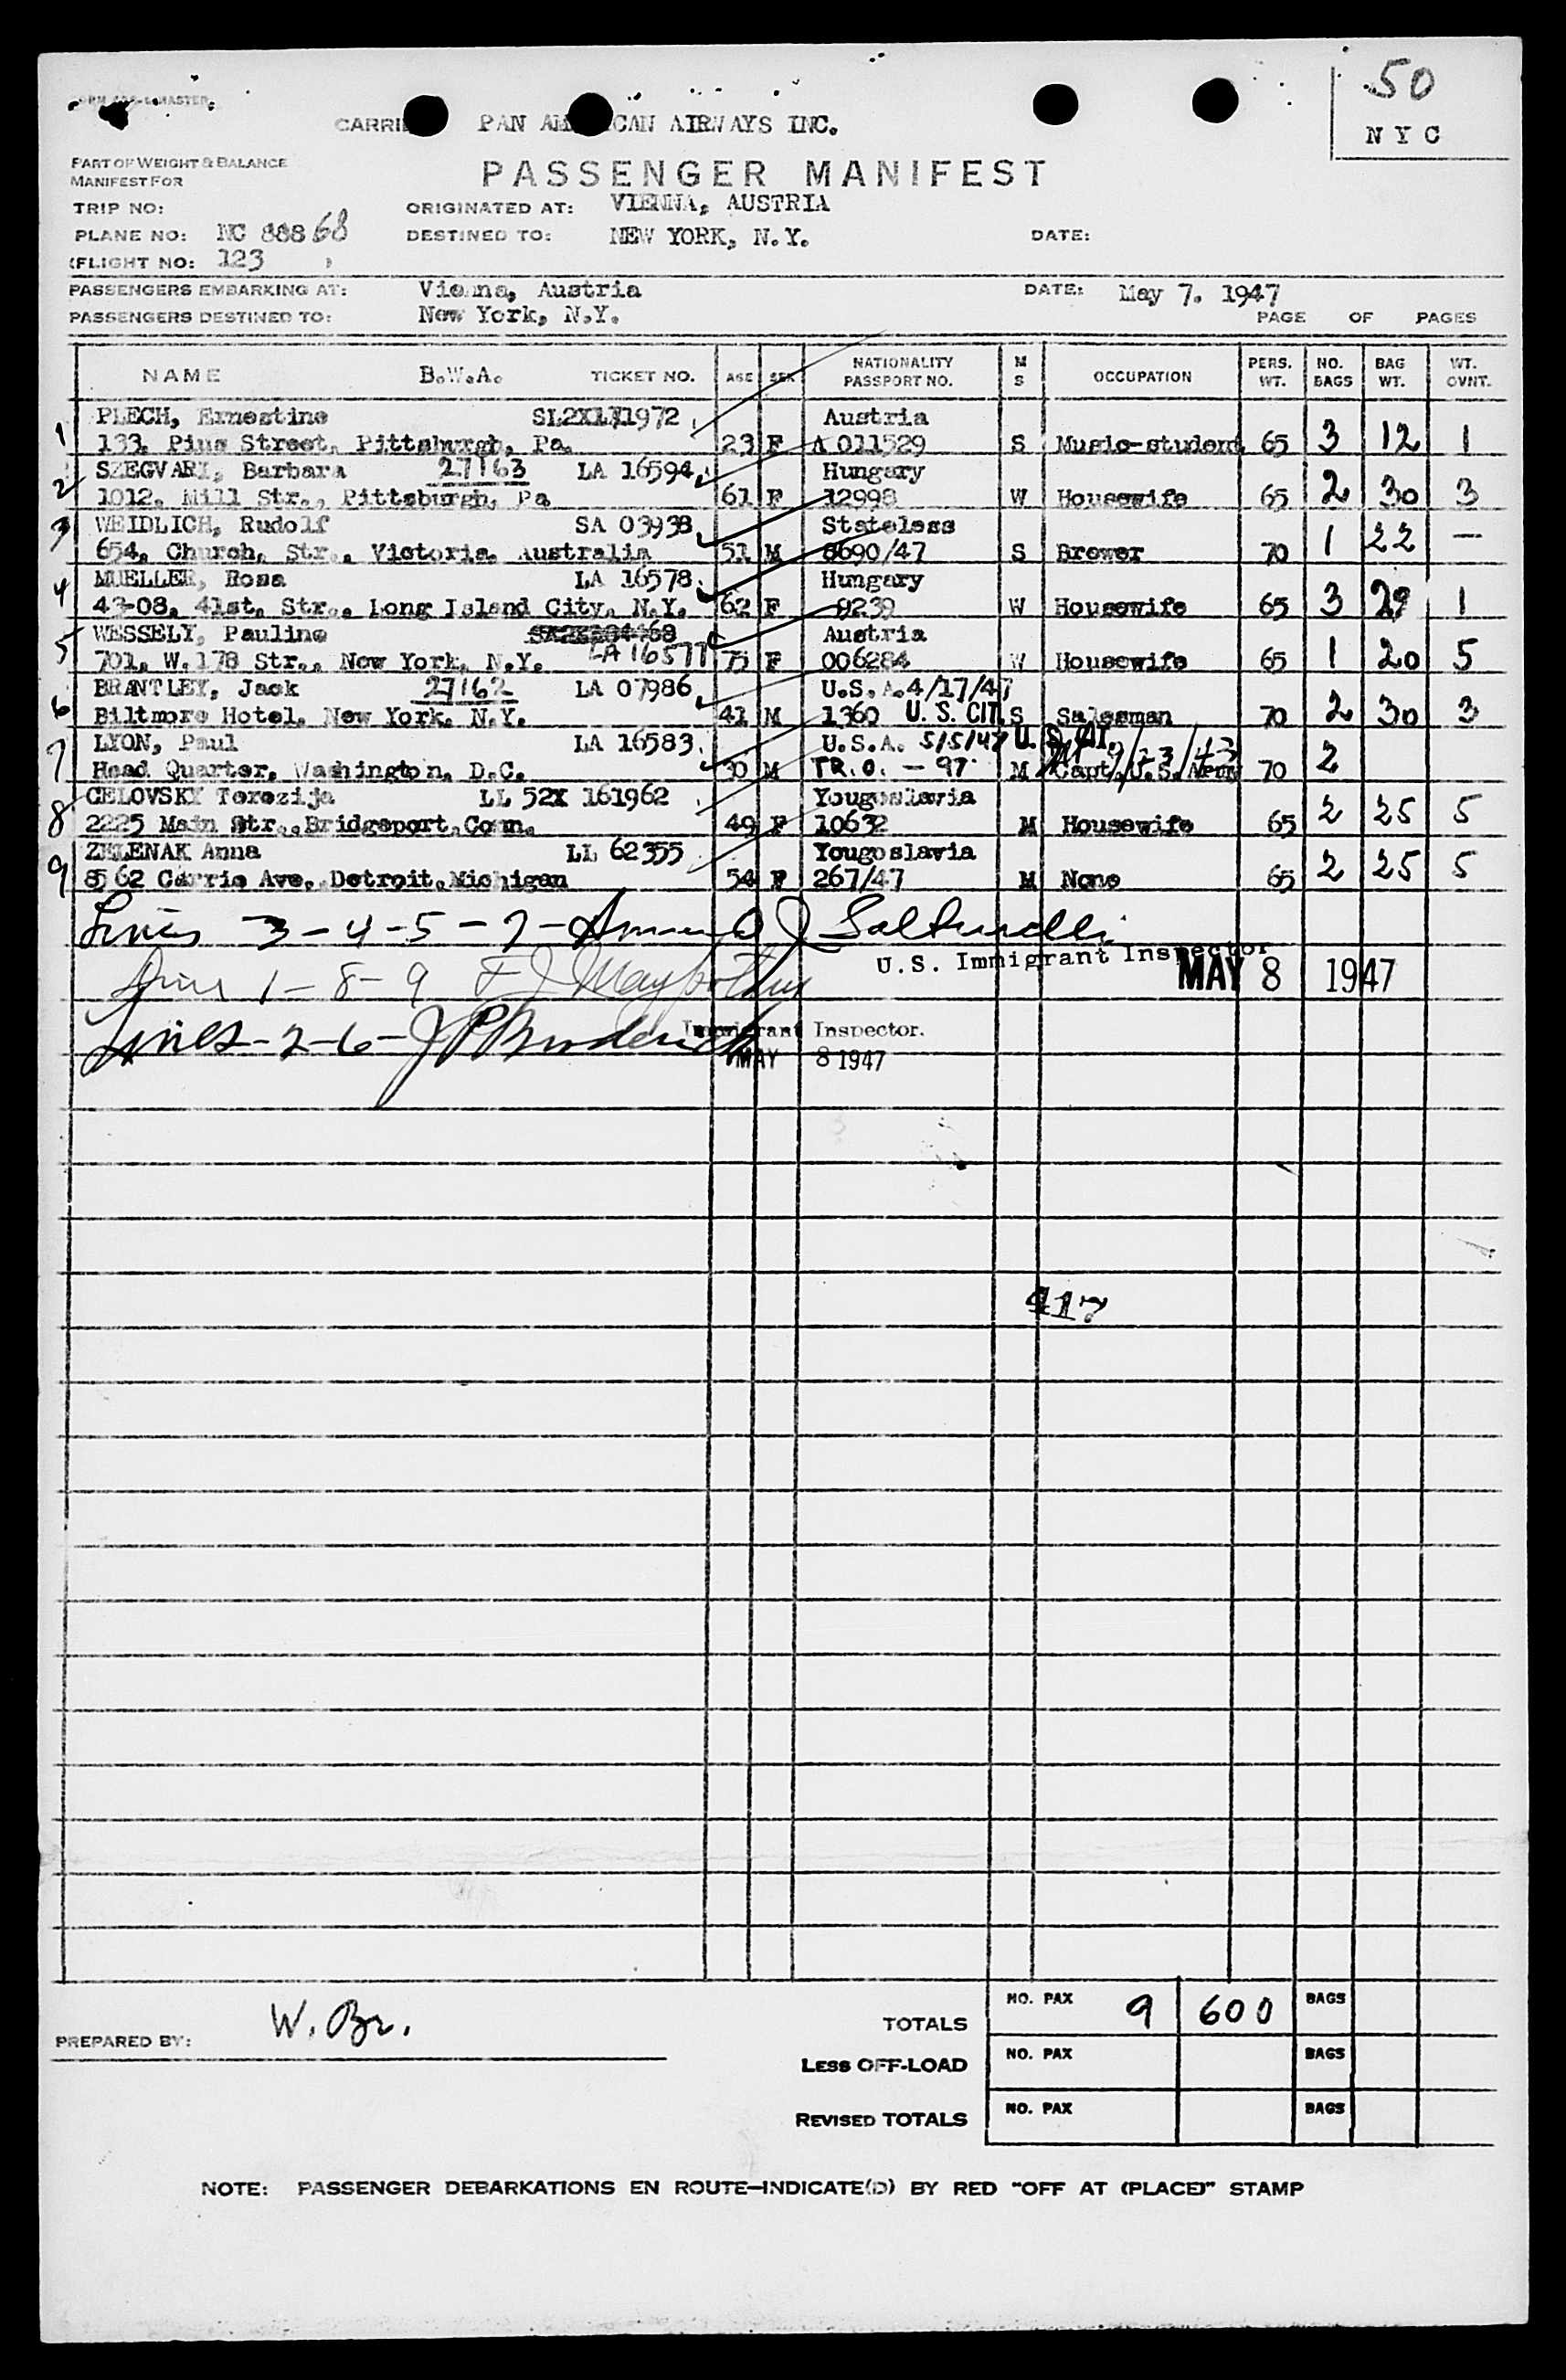 50
N Y C
PAN AM CAN AIRWAYS INC.
PART OF WEIGHT & BALANCE
MANIFEST FOR
PASSENGER MANIFEST
TRIP NO:
ORIGINATED AT: VIENNA, AUSTRIA
PLANE NO: NC 88868
DESTINED TO: NEW YORK, N.Y.
DATE:
(FLIGHT NO: 123 )
PASSENGERS EMBARKING AT: Vienna, Austria
DATE: May 7. 1947
PASSENGERS DESTINED TO: New York, N.Y.
PAGE OF PAGES
NAME B.W.A. TICKET NO. AGE SEX NATIONALITY PASSPORT NO. M S OCCUPATION PERS. WT. NO. BAGS BAG WT. WT. OVNT.
1 PLECH, Ernestine Austria
133, Pius Street, Pittsburgh, Pa. 23 F A 011529 S Music-student 65 3 12 1
2 SZEGVARI, Barbara 27163 LA 16594 Hungary
1012, Mill Str., Pittsburgh, Pa 61 F 12998 W Housewife 65 2 30 3
3 WEIDLICH, Rudolf SA 03938 Stateless
654, Church, Str., Victoria, Australia 51 M 8690/47 S Brewer 70 1 22 —
4 MUELLER, Rosa LA 16578 Hungary
43-08, 41st, Str., Long Island City, N.Y. 62 F 9239 W Housewife 65 3 29 1
5 WESSELY, Pauline Austria
701, W. 178 Str., New York, N.Y. LA 16577 75 F 006284 W Housewife 65 1 20 5
6 BRANTLEY, Jack 27162 LA 07986 U.S.A. 4/17/47
Biltmore Hotel, New York, N.Y. 41 M 1360 U. S. CIT. S Salesman 70 2 30 3
7 LYON, Paul LA 16583 U.S.A. 5/5/47 U. S. CIT.
Head Quarter, Washington, D.C. 30 M TR.O. - 97 M Capt. U.S. Army 70 2
8 CELOVSKY Terezija LL 52X 161962 Yougoslavia
2225 Main Str., Bridgeport, Conn. 49 F 10632 M Housewife 65 2 25 5
9 ZELENAK Anna LL 62355 Yougoslavia
8562 Carrie Ave, Detroit, Michigan 54 F 267/47 M None 65 2 25 5
Lines 3-4-5-7-
U.S. Immigrant Inspector
MAY 8 1947
Line 1-8-9
Lines-2-6- J P Broderick
Immigrant Inspector.
MAY 8 1947
417
PREPARED BY: W. Br.
TOTALS NO. PAX 9 600 BAGS
LESS OFF-LOAD NO. PAX BAGS
REVISED TOTALS NO. PAX BAGS
NOTE: PASSENGER DEBARKATIONS EN ROUTE—INDICATE(D) BY RED "OFF AT (PLACE)" STAMP